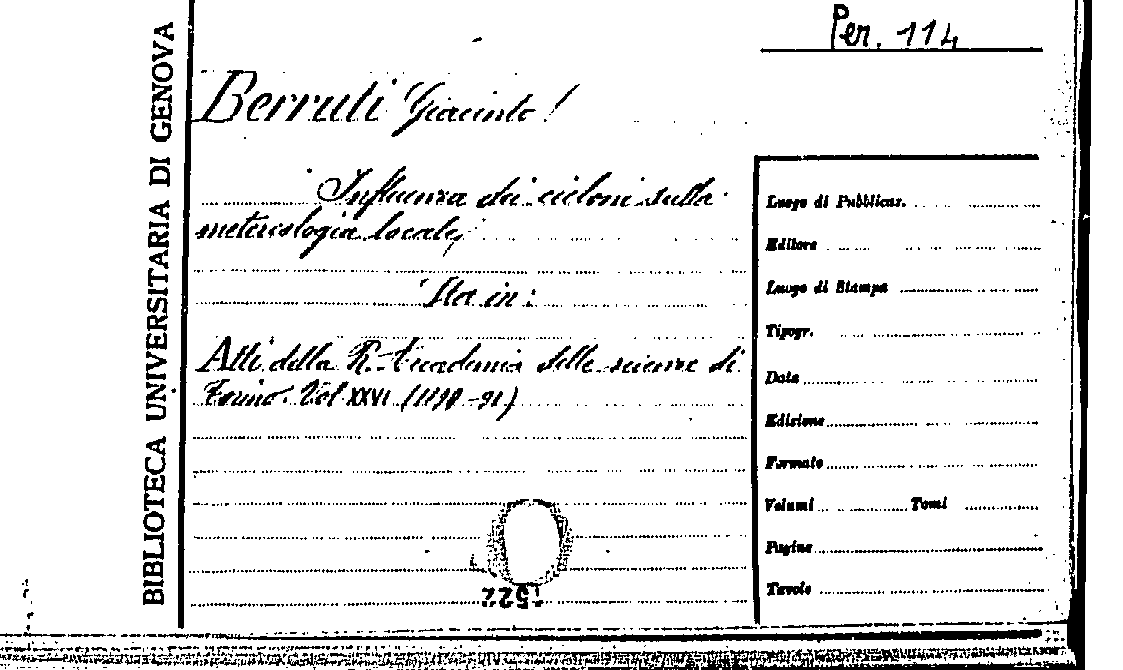 Per. 114
BIBLIOTECA UNIVERSITARIA DI GENOVA
Berruti Giacinto
Influenza dei cicloni sulla
meteorologia locale,
Sta in:
Atti della R. Accademia delle scienze di
Torino. Vol XXVI (1890-91)
Luogo di Pubblicaz.
Editore
Luogo di Stampa
Tipogr.
Data
Edizione
Formato
Volumi Tomi
Pagine
Tavole